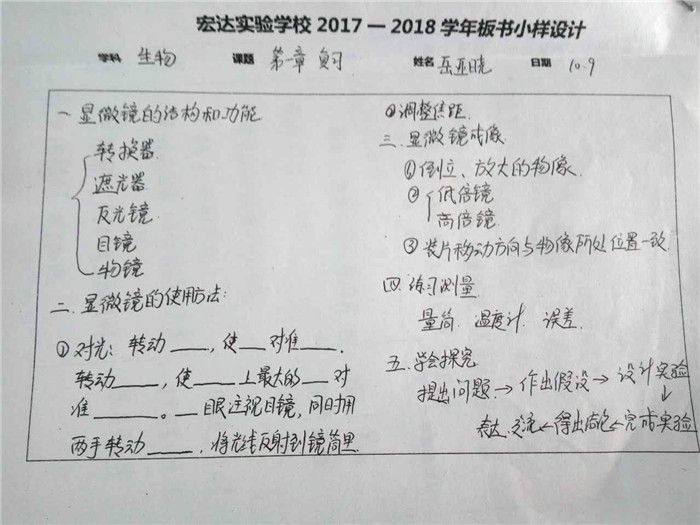 宏达实验学校2017—2018学年板书小样设计
学科 生物 课题 第一章 复习 姓名 岳亚晓 日期 10.9
一 显微镜的结构和功能
转换器
遮光器
反光镜
目镜
物镜
二、显微镜的使用方法:
①对光: 转动____, 使__对准____.
转动____, 使____上最大的__对
准____。__眼注视目镜, 同时用
两手转动____, 将光线反射到镜筒里.
②调整焦距.
三、显微镜成像
①倒立、放大的物像.
② 低倍镜
高倍镜.
③装片移动方向与物像所处位置一致.
四、练习测量
量筒. 温度计. 误差.
五、学会探究
提出问题→作出假设→设计实验
↓
表达.交流←得出结论←完成实验